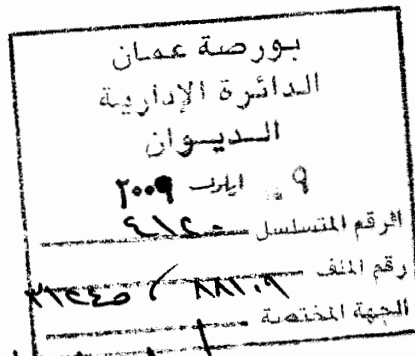 بورصة عمان
الدائرة الإدارية
الديوان
٩ ايلول ٢٠٠٩
الرقم المتسلسل ٤١٢٠
رقم الملف ٨٨١٠٩ / ٣١٢٤٥
الجهة المختصة